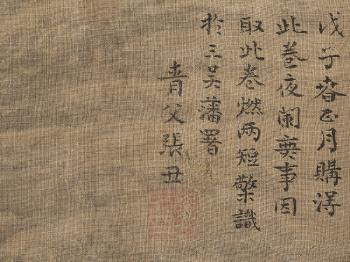 戊子春正月購得
此卷夜闌無事因
取此卷燃兩短檠識
於三吳藩署
青父張丑